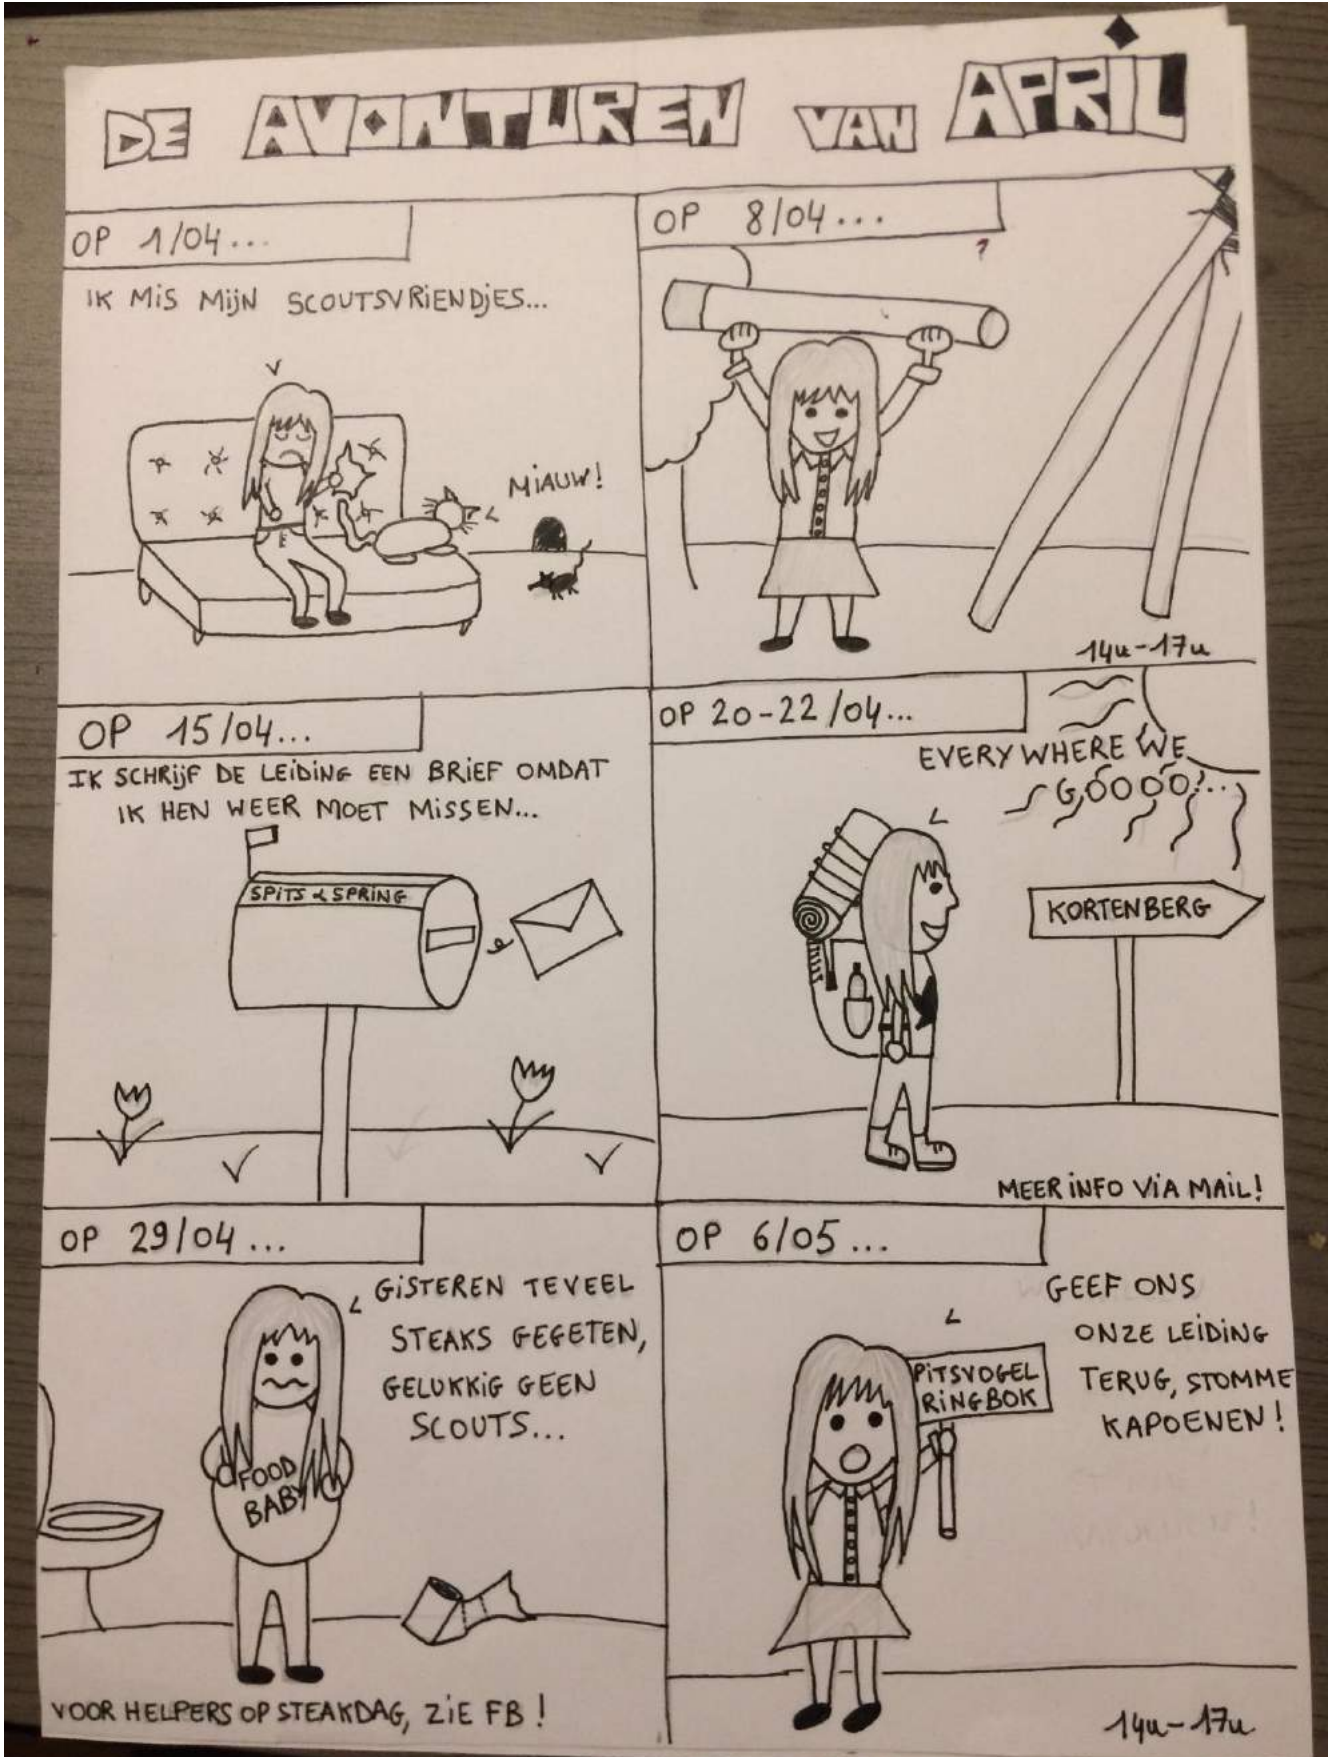 DE AVONTUREN VAN APRIL
OP 1/04...
IK MIS MIJN SCOUTSVRIENDJES...
MIAUW!
OP 8/04...
14u-17u
OP 15/04...
IK SCHRIJF DE LEIDING EEN BRIEF OMDAT
IK HEN WEER MOET MISSEN...
SPITS & SPRING
OP 20-22/04...
EVERYWHERE WE
GOOOO!...
KORTENBERG
MEER INFO VIA MAIL!
OP 29/04...
GISTEREN TEVEEL
STEAKS GEGETEN,
GELUKKIG GEEN
SCOUTS...
FOOD
BABY
VOOR HELPERS OP STEAKDAG, ZIE FB!
OP 6/05...
GEEF ONS
ONZE LEIDING
TERUG, STOMME
KAPOENEN!
PITSVOGEL
RINGBOK
14u-17u